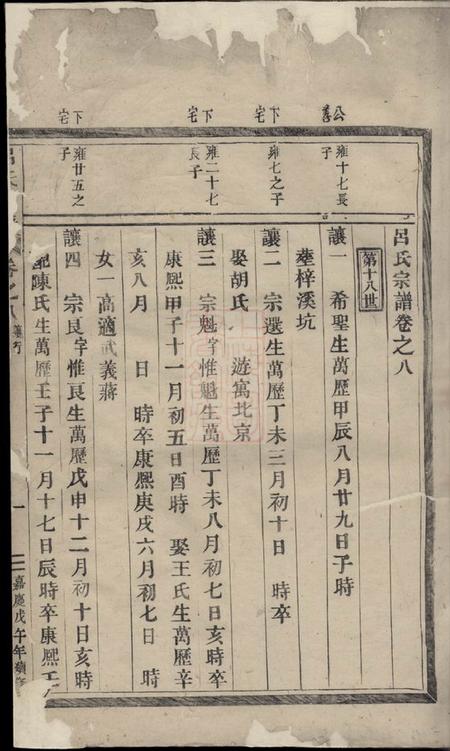 呂氏宗譜卷之八
第十八世
公
善
雍十七長
子
讓一 希聖生萬歷甲辰八月廿九日子時
塟梓溪坑
下
宅
雍七之子
讓二 宗選生萬歷丁未三月初十日 時卒
娶胡氏 遊寓北京
下
宅
雍二十七
長子
讓三 宗魁字惟魁生萬歷丁未八月初七日亥時卒
康熙甲子十一月初五日酉時 娶王氏生萬歷辛
亥八月 日 時卒康熙庚戌六月初七日 時
女一高適武義蔣
下
宅
雍廿五之
子
讓四 宗良字惟良生萬歷戊申十二月初十日亥時
配陳氏生萬歷壬子十一月十七日辰時卒康熙
卷之八
一
嘉慶戊午年